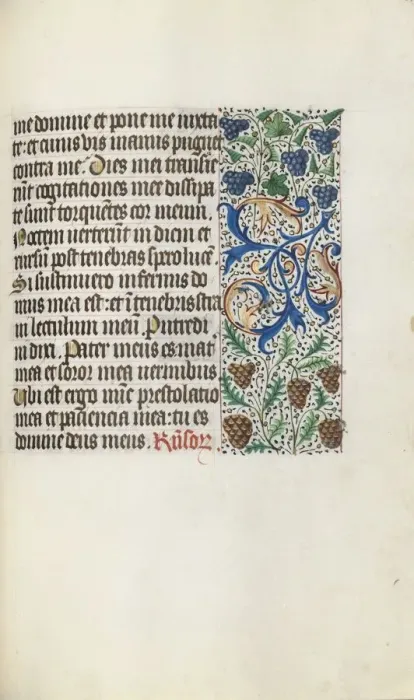 me domine et pone me iuxta
te: et cuius vis manus pugnet
contra me. Dies mei transie
rūt cogitationes mee dissipa
te sunt torquētes cor meum.
Noctem verterūt in diem et
rursū post tenebras spero lucē
Si sustinuero infernus do
mus mea est: et ī tenebris stra
ui lectulum meū. Putredi
ni dixi. Pater meus es mat̄
mea et soror mea vermibus
Ubi est ergo nūc prestolatio
mea et paciencia mea: tu es
domine deus meus. Rūsoꝝ